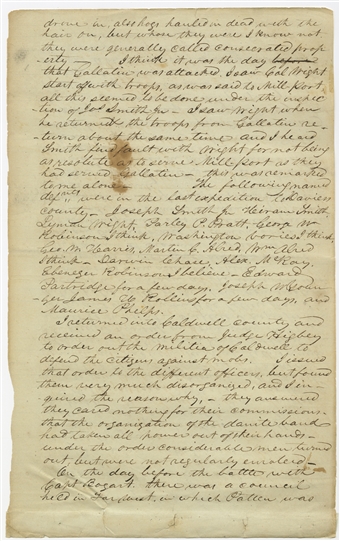 drove in, also hogs hauled in dead with the
hair on, but whose they were I know not
they were generally called consecrated prop
-erty — I think it was the day before
that Gallatin was attacked, I saw Col. Wright
start off with troops, as was said to Mill port
all this seemed to be done under the inspec
-tion of Jos. Smith jr. — I saw Wright when
he returned the troops from Gallatin re-
turn about the same time and I heard
Smith find fault with Wright for not being
as resolute as to serve Mill port as they
had served Gallatin — this was remarked
to me alone The following named
defts were in the last expedition to Daviess
county — Joseph Smith jr. Hiram Smith
Lyman Wright, Parley P. Pratt, George W.
Robinson I think, Washington Vories, I think,
Geo. W. Harris, Martin C. Alred, Wm Alred
I think — Darwin Chase, Alex. McRay,
Ebenezer Robinson I believe — Edward
Partridge for a few days, Joseph W. Youn
-ger James H. Rollins for a few days, and
Maurice Phelps.
I returned into Caldwell County and
received an order from Judge Higbey
to order out the militia of Caldwell to
defend the citizens against mobs. I issued
that order to the different officers, but found
them very much disorganized, and I in-
quired the reason why, — they answered
they cared nothing for their commissions
that the organization of the danite band
had taken all power out of their hands —
under the order considerable men turned
out, but were not regularly enroled —
On the day before the battle with
Capt Bogart there was a council
held in Far West, in which Patten was